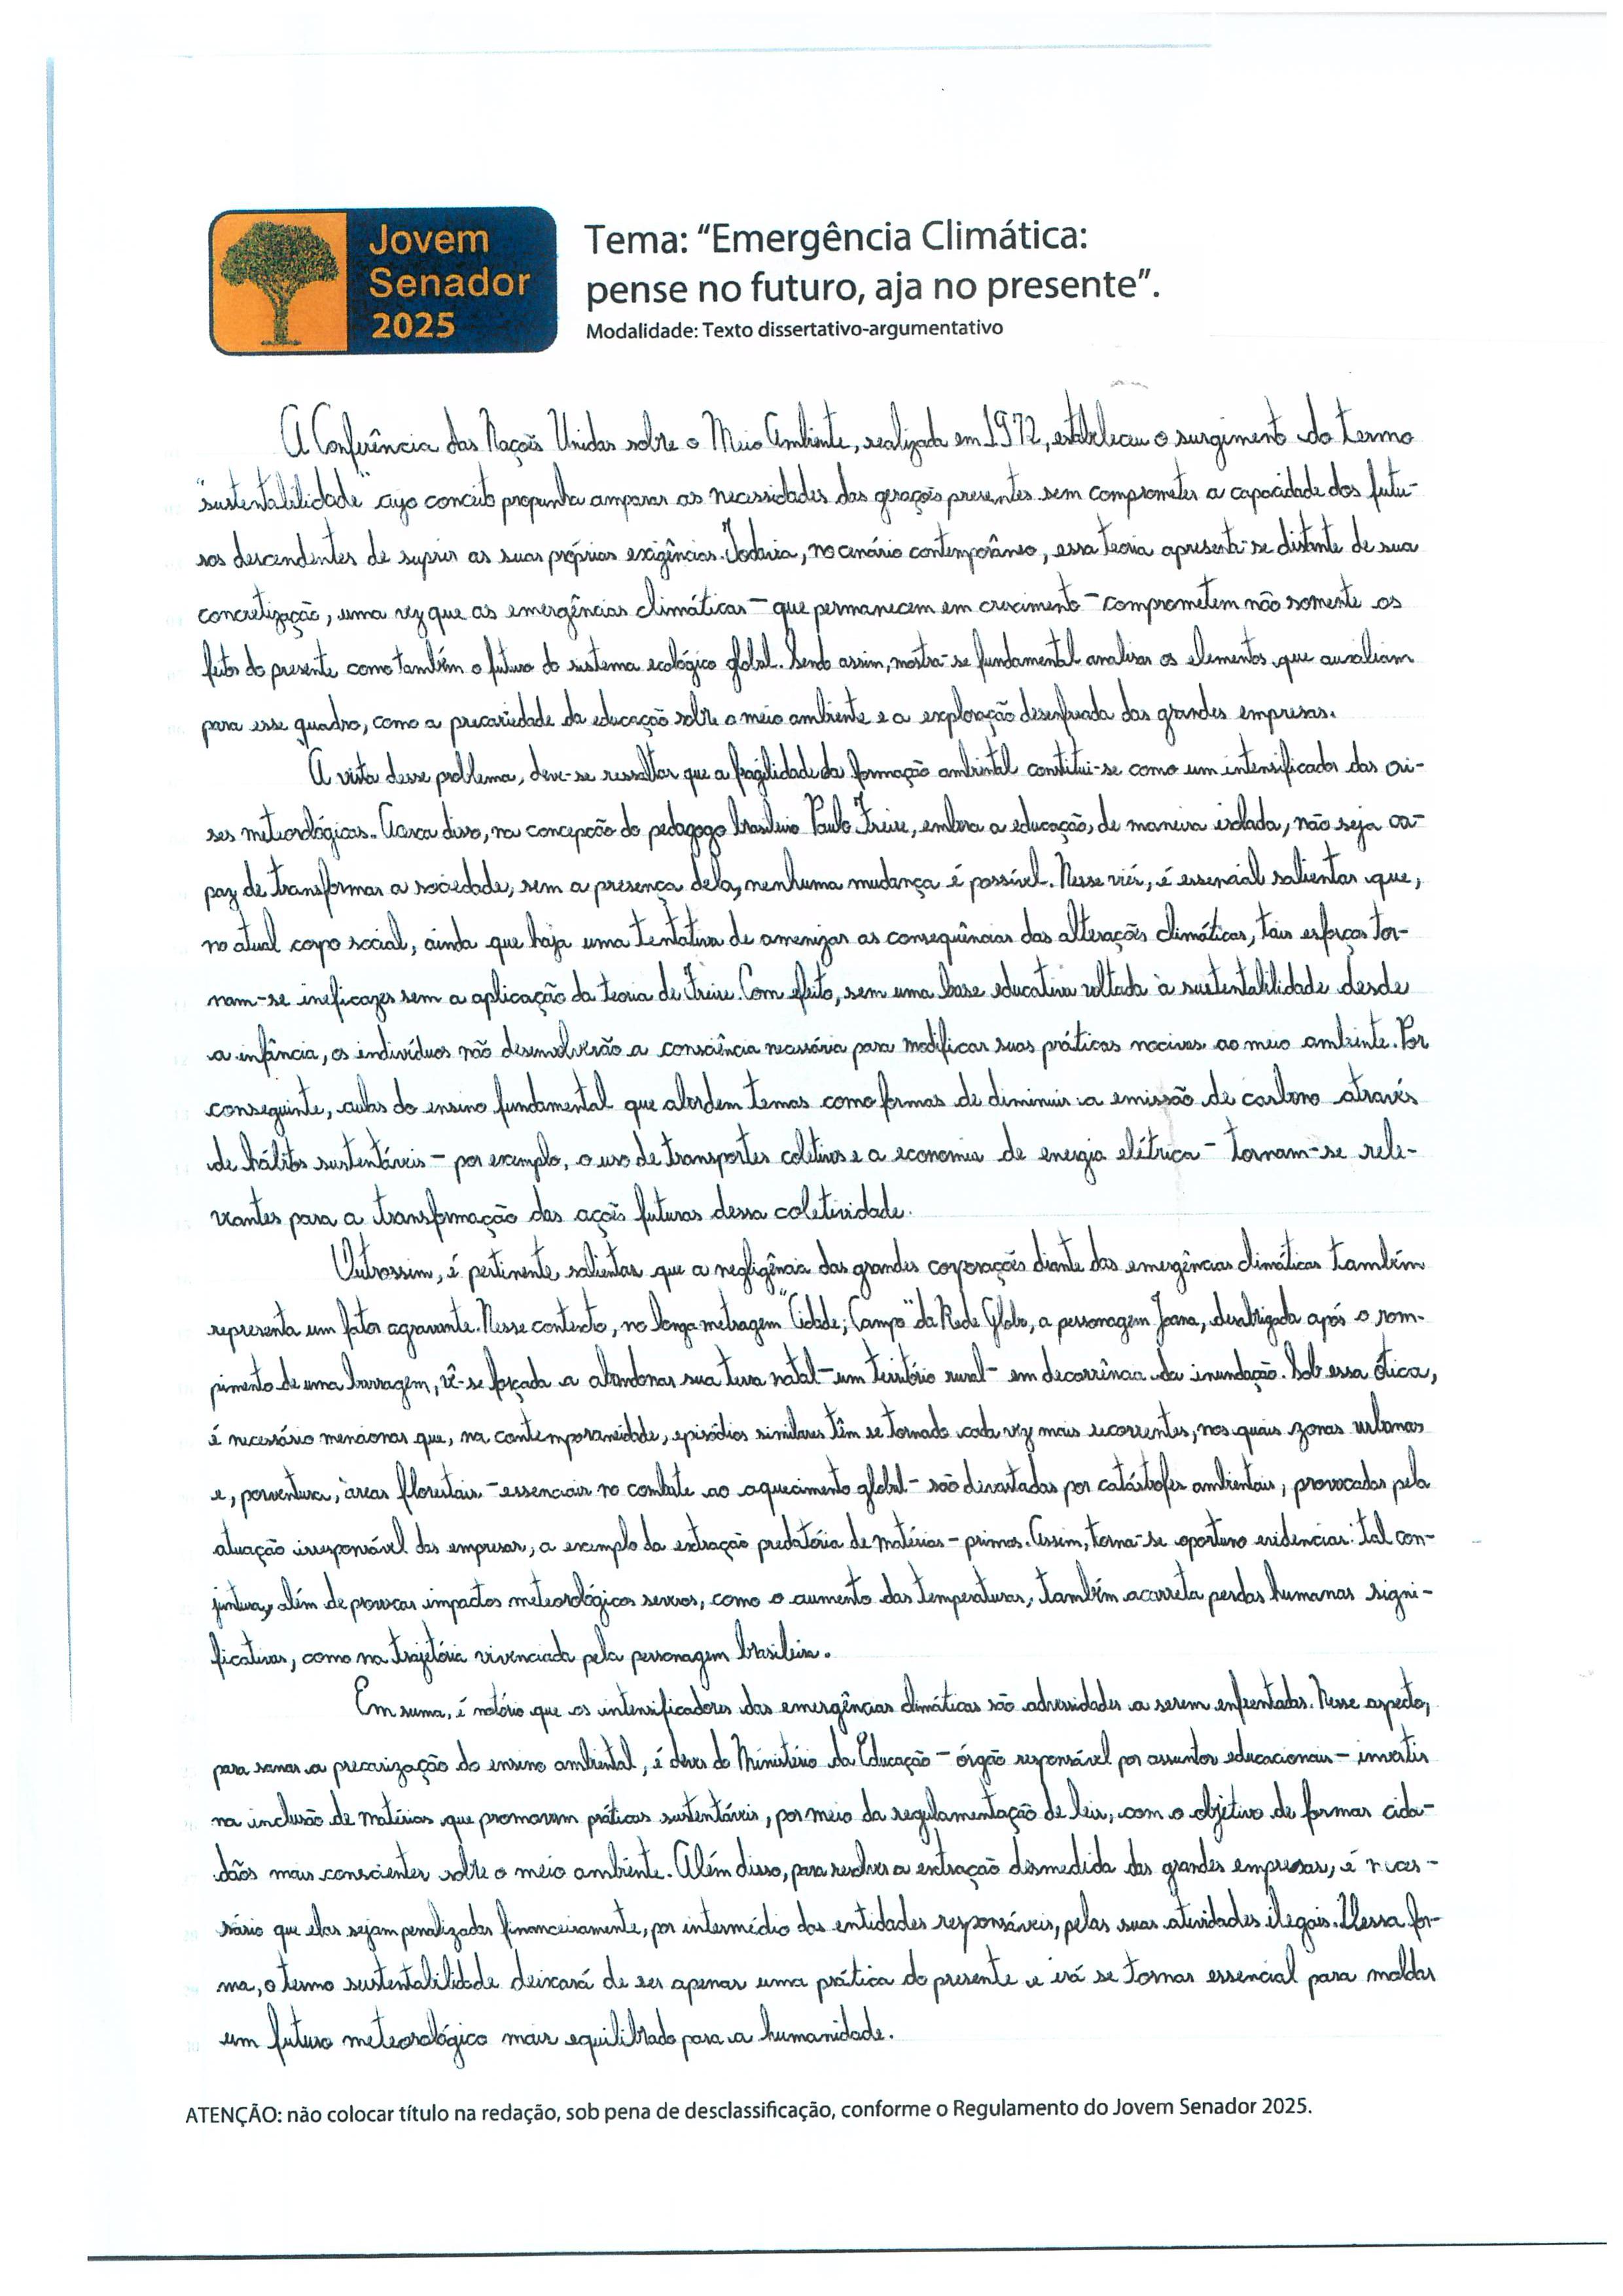 Jovem
Senador
2025
Tema: “Emergência Climática:
pense no futuro, aja no presente”.
Modalidade: Texto dissertativo-argumentativo
A Conferência das Nações Unidas sobre o Meio Ambiente, realizada em 1972, estabeleceu o surgimento do termo
"sustentabilidade" cujo conceito propunha amparar as necessidades das gerações presentes sem comprometer a capacidade dos futu-
ros descendentes de suprir as suas próprias exigências. Todavia, no cenário contemporâneo, essa teoria apresenta-se distante de sua
concretização, uma vez que as emergências climáticas – que permanecem em crescimento – comprometem não somente os
feitos do presente, como também o futuro do sistema ecológico global. Sendo assim, mostra-se fundamental analisar os elementos que auxiliam
para esse quadro, como a precariedade da educação sobre o meio ambiente e a exploração desenfreada das grandes empresas.
À vista desse problema, deve-se ressaltar que a fragilidade da formação ambiental constitui-se como um intensificador das cri-
ses meteorológicas. Acerca disso, na concepção do pedagogo brasileiro Paulo Freire, embora a educação, de maneira isolada, não seja ca-
paz de transformar a sociedade, sem a presença dela, nenhuma mudança é possível. Nesse viés, é essencial salientar que,
no atual corpo social, ainda que haja uma tentativa de amenizar as consequências das alterações climáticas, tais esforços tor-
nam-se ineficazes sem a aplicação da teoria de Freire. Com efeito, sem uma base educativa voltada à sustentabilidade desde
a infância, os indivíduos não desenvolverão a consciência necessária para modificar suas práticas nocivas ao meio ambiente. Por
conseguinte, aulas do ensino fundamental que abordem temas como formas de diminuir a emissão de carbono através
de hábitos sustentáveis – por exemplo, o uso de transportes coletivos e a economia de energia elétrica – tornam-se rele-
vantes para a transformação das ações futuras dessa coletividade.
Outrossim, é pertinente salientar que a negligência das grandes corporações diante das emergências climáticas também
representa um fator agravante. Nesse contexto, no longa-metragem "Cidade; Campo" da Rede Globo, a personagem Joana, desabrigada após o rom-
pimento de uma barragem, vê-se forçada a abandonar sua terra natal – um território rural – em decorrência da inundação. Sob essa ótica,
é necessário mencionar que, na contemporaneidade, episódios similares têm se tornado cada vez mais recorrentes, nos quais zonas urbanas
e, porventura, áreas florestais – essenciais no combate ao aquecimento global – são devastadas por catástrofes ambientais, provocadas pela
atuação irresponsável das empresas, a exemplo da extração predatória de matérias-primas. Assim, torna-se oportuno evidenciar: tal con-
juntura, além de provocar impactos meteorológicos severos, como o aumento das temperaturas, também acarreta perdas humanas signi-
ficativas, como na trajetória vivenciada pela personagem brasileira.
Em suma, é notório que os intensificadores das emergências climáticas são adversidades a serem enfrentadas. Nesse aspecto,
para sanar a precarização do ensino ambiental, é dever do Ministério da Educação – órgão responsável por assuntos educacionais – investir
na inclusão de matérias que promovam práticas sustentáveis, por meio da regulamentação de leis, com o objetivo de formar cida-
dãos mais conscientes sobre o meio ambiente. Além disso, para resolver a extração desmedida das grandes empresas, é neces-
sário que elas sejam penalizadas financeiramente, por intermédio das entidades responsáveis, pelas suas atividades ilegais. Dessa for-
ma, o termo sustentabilidade deixará de ser apenas uma prática do presente e irá se tornar essencial para moldar
um futuro meteorológico mais equilibrado para a humanidade.
ATENÇÃO: não colocar título na redação, sob pena de desclassificação, conforme o Regulamento do Jovem Senador 2025.